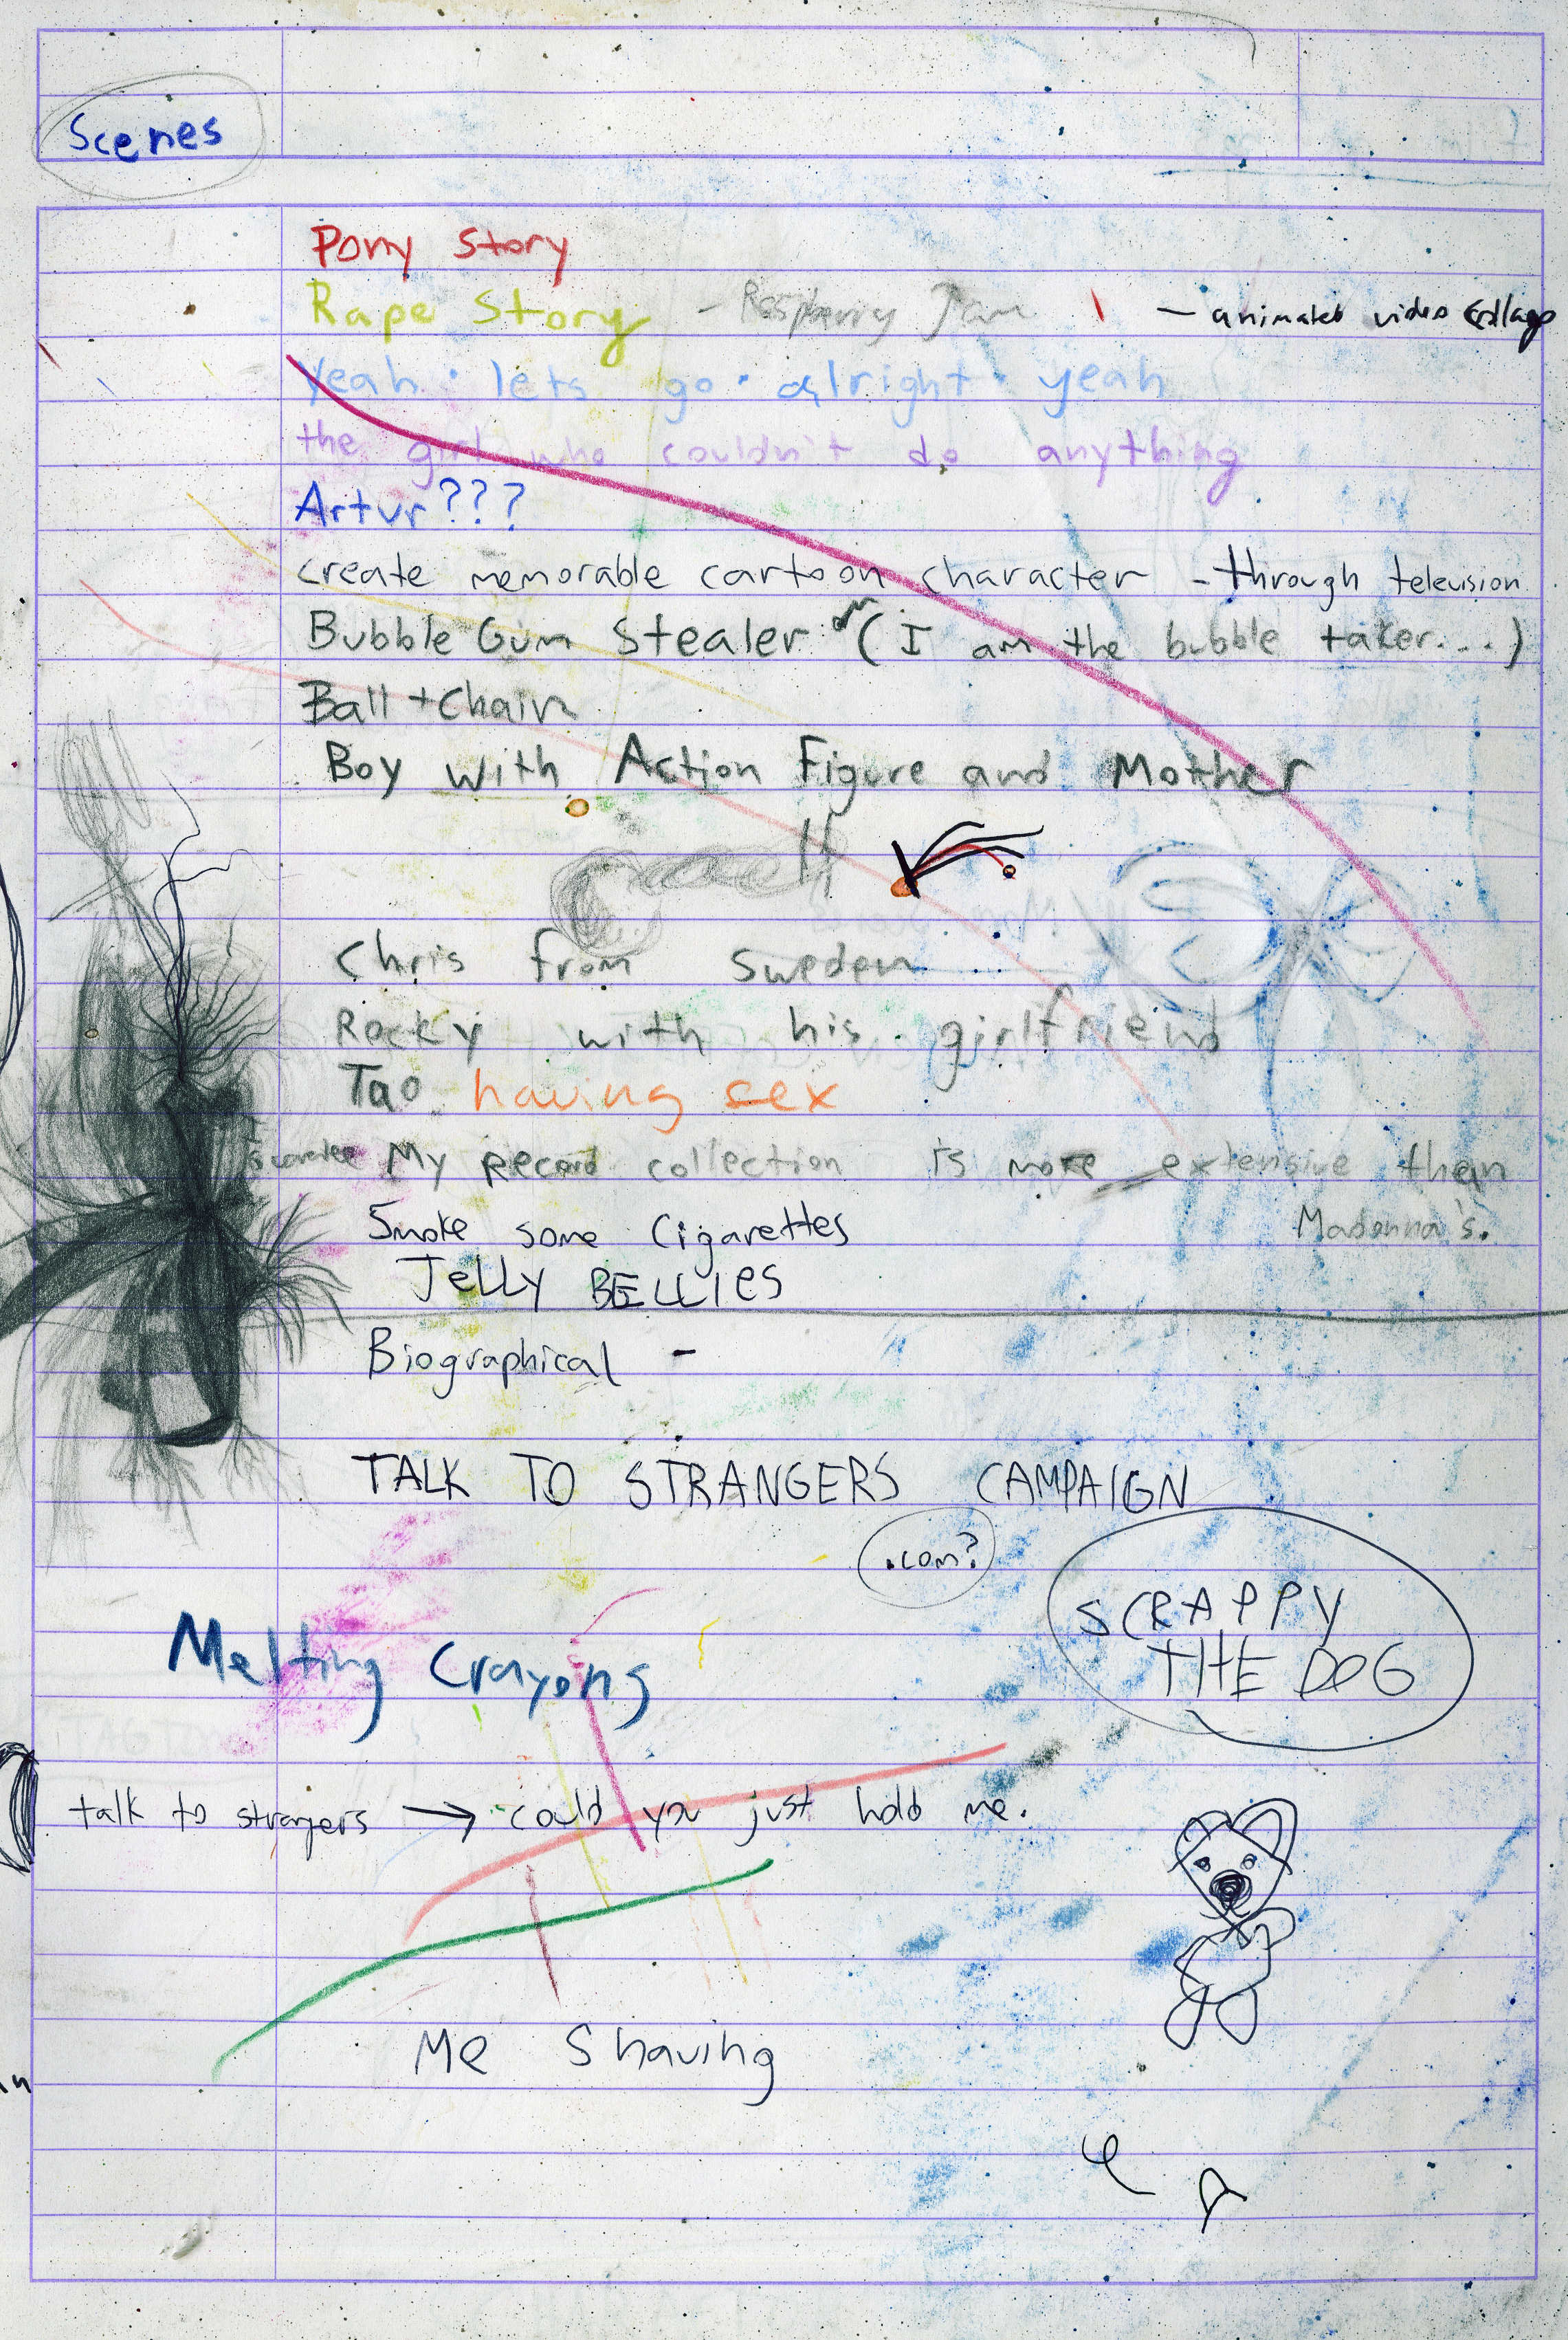 Scenes
Pony Story
Rape Story - Raspberry Jam - animated video collage
Yeah · lets go · alright · yeah
the girl who couldn't do anything
Artur???
create memorable cartoon character - through television
Bubble Gum Stealer (I am the bubble taker...)
Ball + Chain
Boy with Action Figure and Mother
Chris from Sweden
Rocky with his girlfriend
Tao having sex
I guarantee My record collection is more extensive than
Madonna's.
Smoke some Cigarettes
Jelly BELLIES
Biographical -
TALK TO STRANGERS CAMPAIGN
.com?
SCRAPPY
THE DOG
Melting Crayons
talk to strangers → could you just hold me.
Me Shaving